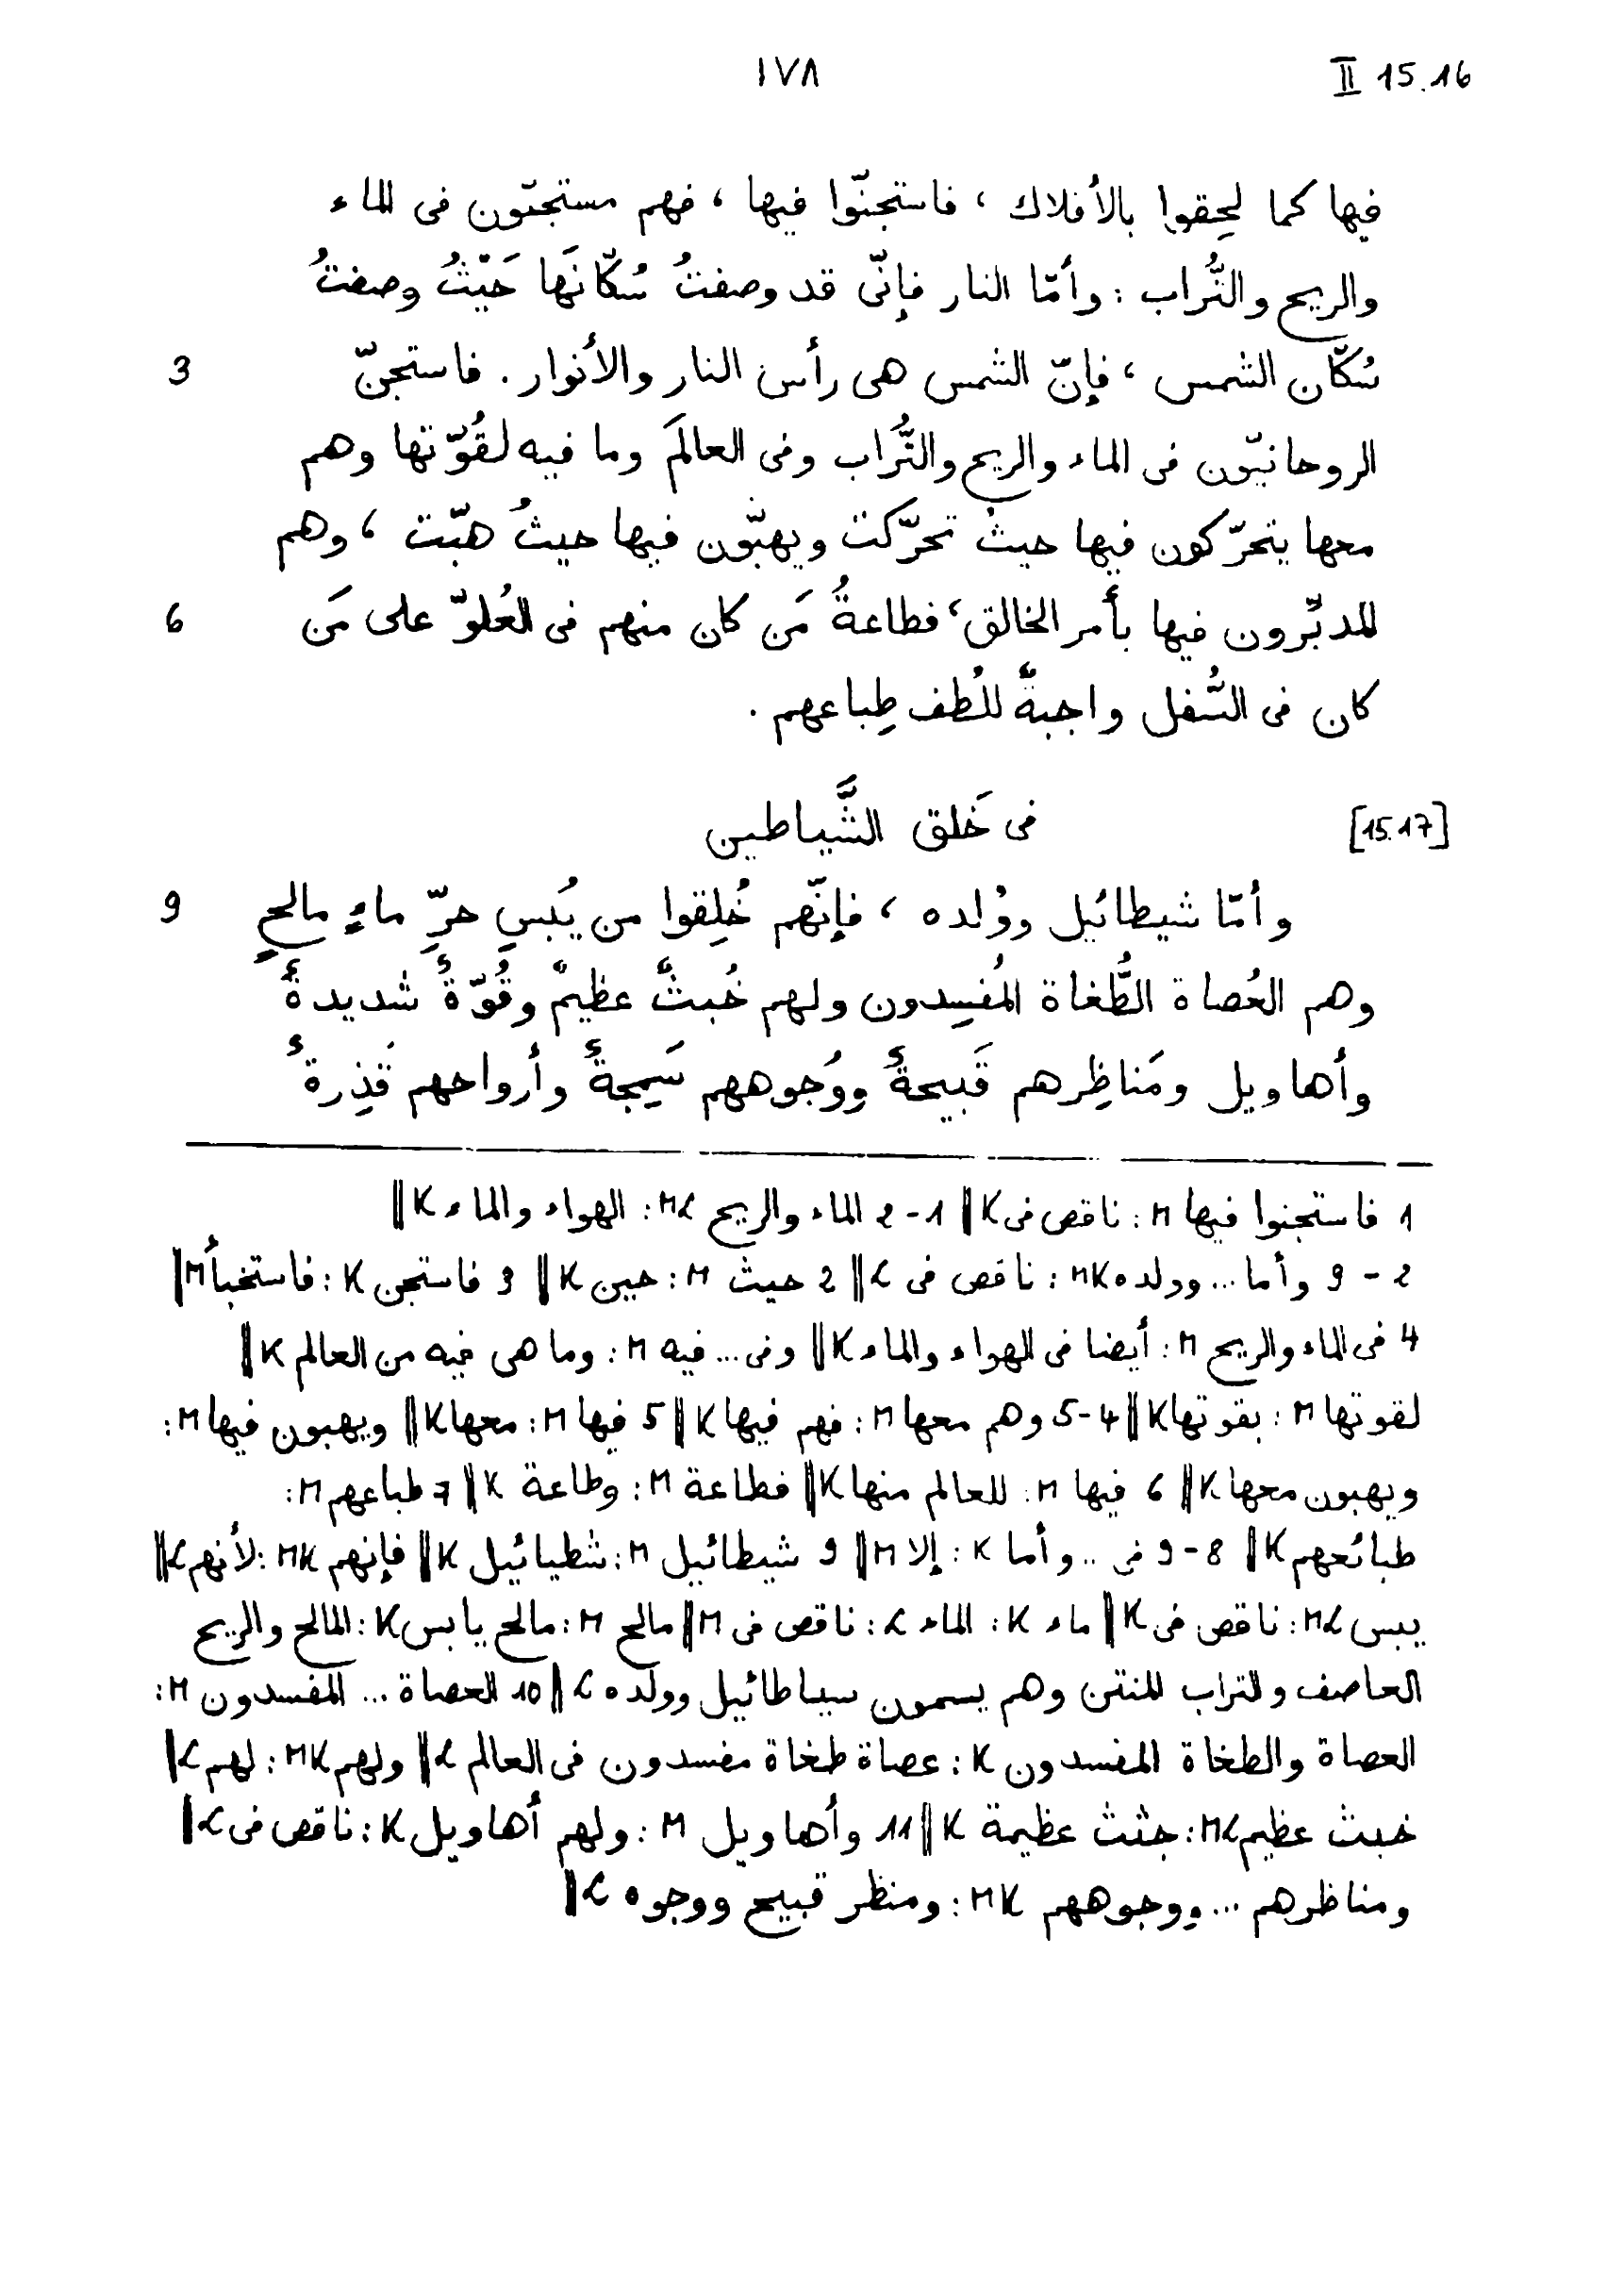 ١٧٨
II 15.16
فيها كما لحِقوا بالأفلاك ، فاستجنّوا فيها ، فهم مستجنّون فى الماء
والريح والتُّراب : وأمّا النار فإنّى قد وصفتُ سُكّانَها حَيْثُ وصفتُ
سُكّان الشمس ، فإنّ الشمس هى رأس النار والأنوار . فاستجنّ 3
الروحانيّون فى الماء والريح والتُّراب وفى العالَم وما فيه لقُوّتها وهم
معها يتحرّكون فيها حيثُ تحرّكت ويهبّون فيها حيثُ هبّت ، وهم
المدبِّرون فيها بأمر الخالق ، فطاعةُ مَن كان منهم فى العُلوّ على مَن 6
كان فى السُّفل واجبةٌ للُطف طِباعهم .
[15.17] فى خَلق الشَّياطين
وأمّا شيطائيل ووُلده ، فإنّهم خُلِقوا من يُبسِ حرِّ ماءٍ مالحٍ 9
وهم العُصاة الطُّغاة المُفسِدون ولهم خُبثٌ عظيمٌ وقُوّةٌ شديدةٌ
وأهاويل ومَناظِرهم قَبيحةٌ ووُجوههم سَمِجةٌ وأرواحهم قَذِرةٌ
1 فاستجنوا فيها M : ناقص فى K ‖ 1-2 الماء والريح ML : الهواء والماء K ‖
2 - 9 وأما ... وولده MK : ناقص فى L ‖ 2 حيث M : حين K ‖ 3 فاستجن K : فاستخبأ M ‖
4 فى الماء والريح M : أيضا فى الهواء والماء K ‖ وفى ... فيه M : وما هى فيه من العالم K ‖
لقوتها M : بقوتها K ‖ 4-5 وهم معها M : فهم فيها K ‖ 5 فيها M : معها K ‖ ويهبون فيها M :
ويهبون معها K ‖ 6 فيها M : للعالم منها K ‖ فطاعة M : وطاعة K ‖ 7 طباعهم M :
طبائعهم K ‖ 8-9 فى .. وأما K : إلا M ‖ 9 شيطائيل M : شطيائيل K ‖ فإنهم MK : لأنهم L ‖
يبس ML : ناقص فى K ‖ ماء K : الماء L : ناقص فى M ‖ مالح M : مالح يابس K : المالح والريح
العاصف والتراب المنتن وهم يسمون سياطائيل وولده L ‖ 10 العصاة ... المفسدون M :
العصاة والطغاة المفسدون K : عصاة طغاة مفسدون فى العالم L ‖ ولهم MK : لهم L ‖
خبث عظيم ML : جثث عظيمة K ‖ 11 وأهاويل M : ولهم أهاويل K : ناقص فى L ‖
ومناظرهم ... ووجوههم MK : ومنظر قبيح ووجوه L ‖